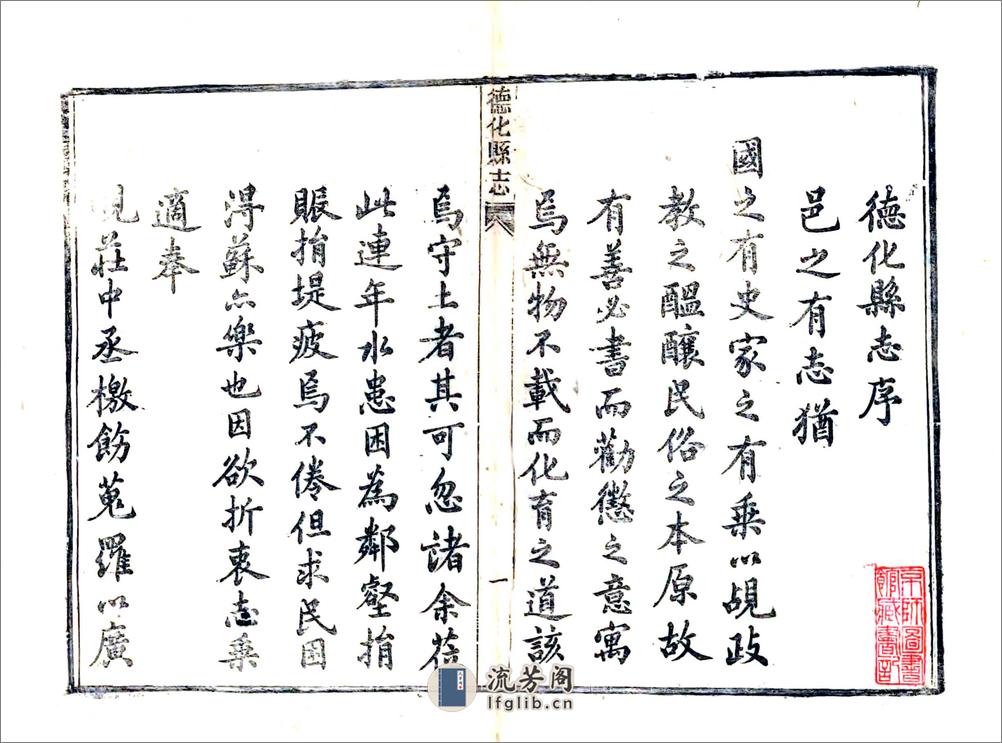 德化縣志序
邑之有志猶
國之有史家之有乘以覘政
教之醞釀民俗之本原故
有善必書而勸懲之意寓
焉無物不載而化育之道該
德化縣志
一
焉守土者其可忽諸余蒞
此連年水患困為鄰壑捐
賑捐堤疲焉不倦但求民困
得蘇亦樂也因欲折衷志乘
適奉
莊中丞檄飭蒐羅以廣
京師圖書
館藏書記
流芳阁
lfglib.cn